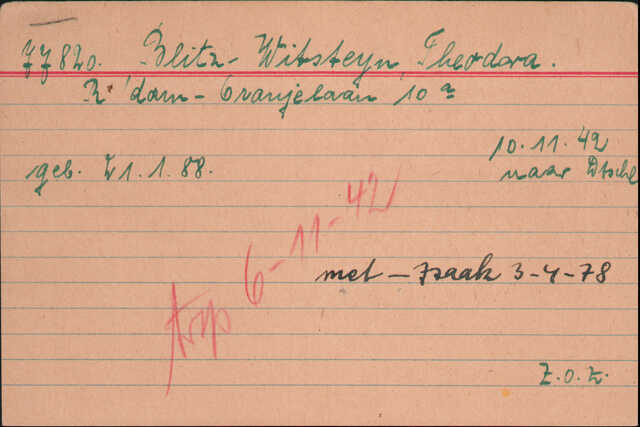 77820. Blitz-Witsteyn, Theodora.
R'dam - Oranjelaan 10 a
10.11.42
geb. 21.1.88. naar Dtschl
6-11-42
met - Izaak 3-4-78
Z.O.Z.